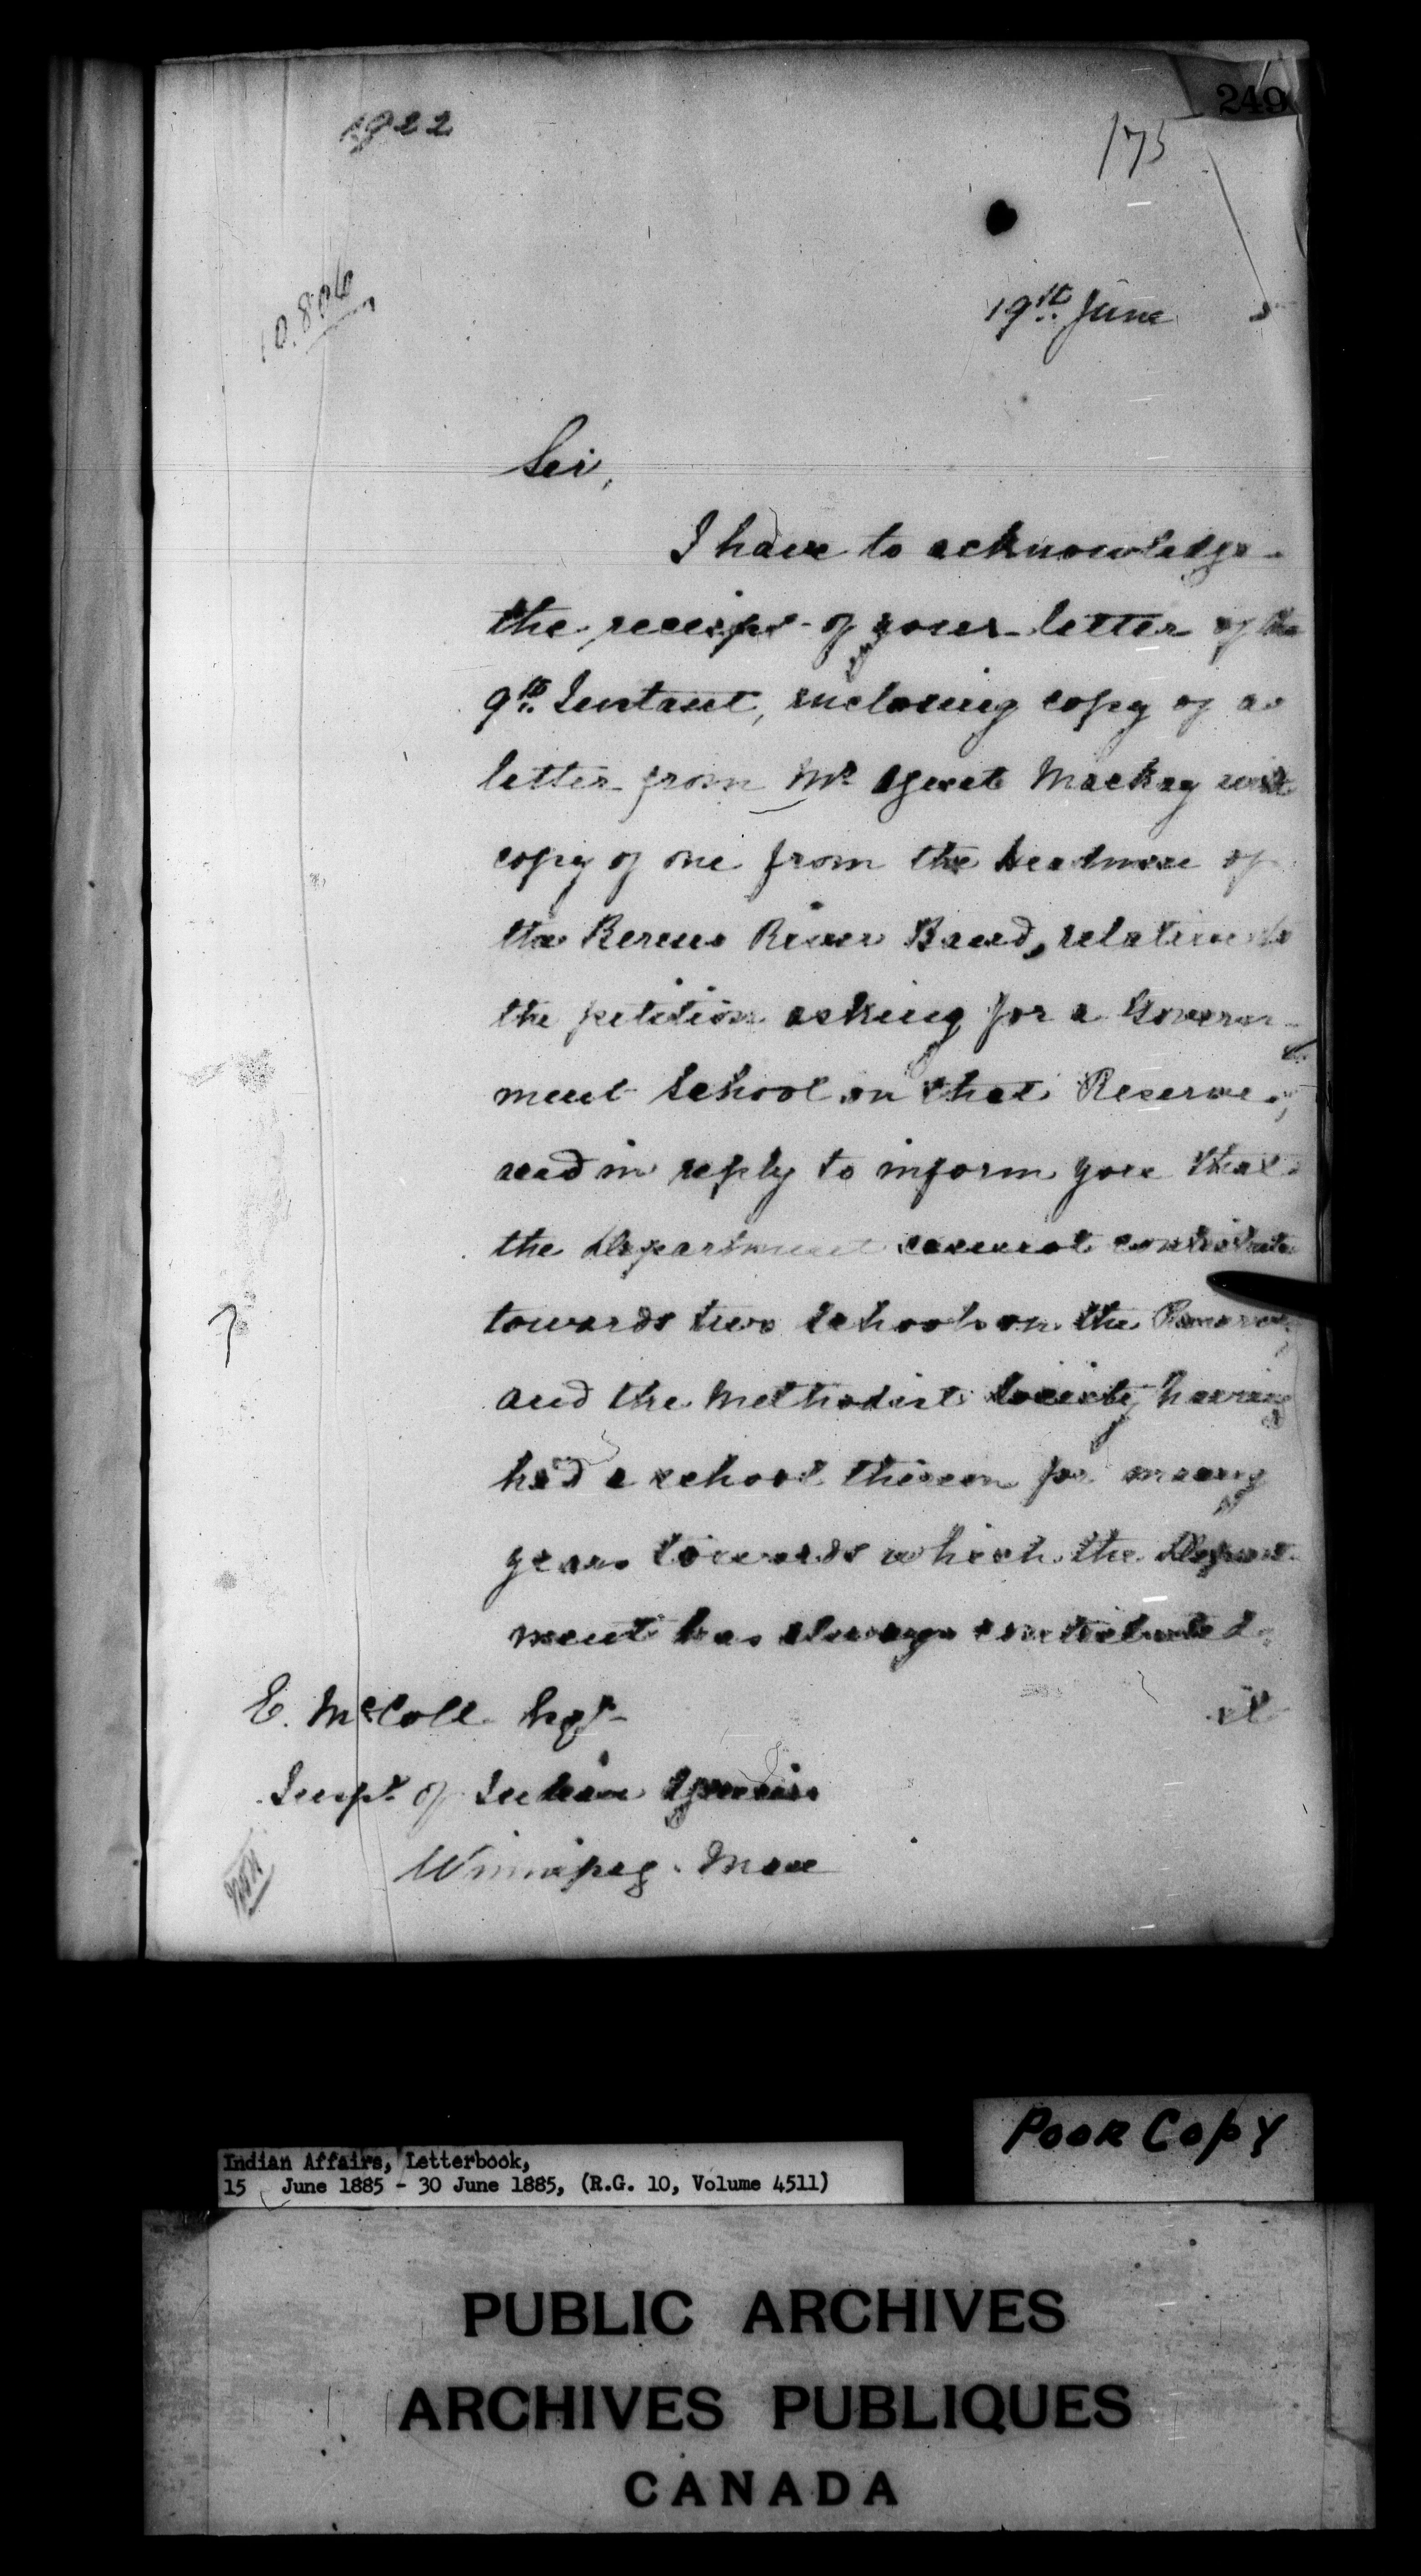 249
1922
175
10.806
19th June 5
Sir,
I have to acknowledge
the receipt of your letter of the
9th Instant, inclosing copy of a
letter from Mr Agent Mackay with
copy of one from the headmen of
the Berens River Band, relative to
the petition asking for a Govern-
ment School on that Reserve,
and in reply to inform you that
the Department cannot contribute
towards two schools on the Reserve,
and the Methodist Society having
had a school thereon for many
years towards which the Depart-
ment has always contributed,
it
E. McColl Esqr
Inspr. of Indian Agencies
Winnipeg. Man
Poor Copy
Indian Affairs, Letterbook,
15 June 1885 - 30 June 1885, (R.G. 10, Volume 4511)
PUBLIC ARCHIVES
ARCHIVES PUBLIQUES
CANADA